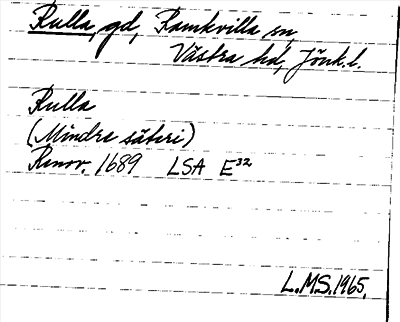 Rulla, gd, Ramkvilla sn,
Västra hd, Jönk.l.
Rulla
(Mindre säteri)
Renov. 1689 LSA E³²
L.M.S. 1965.